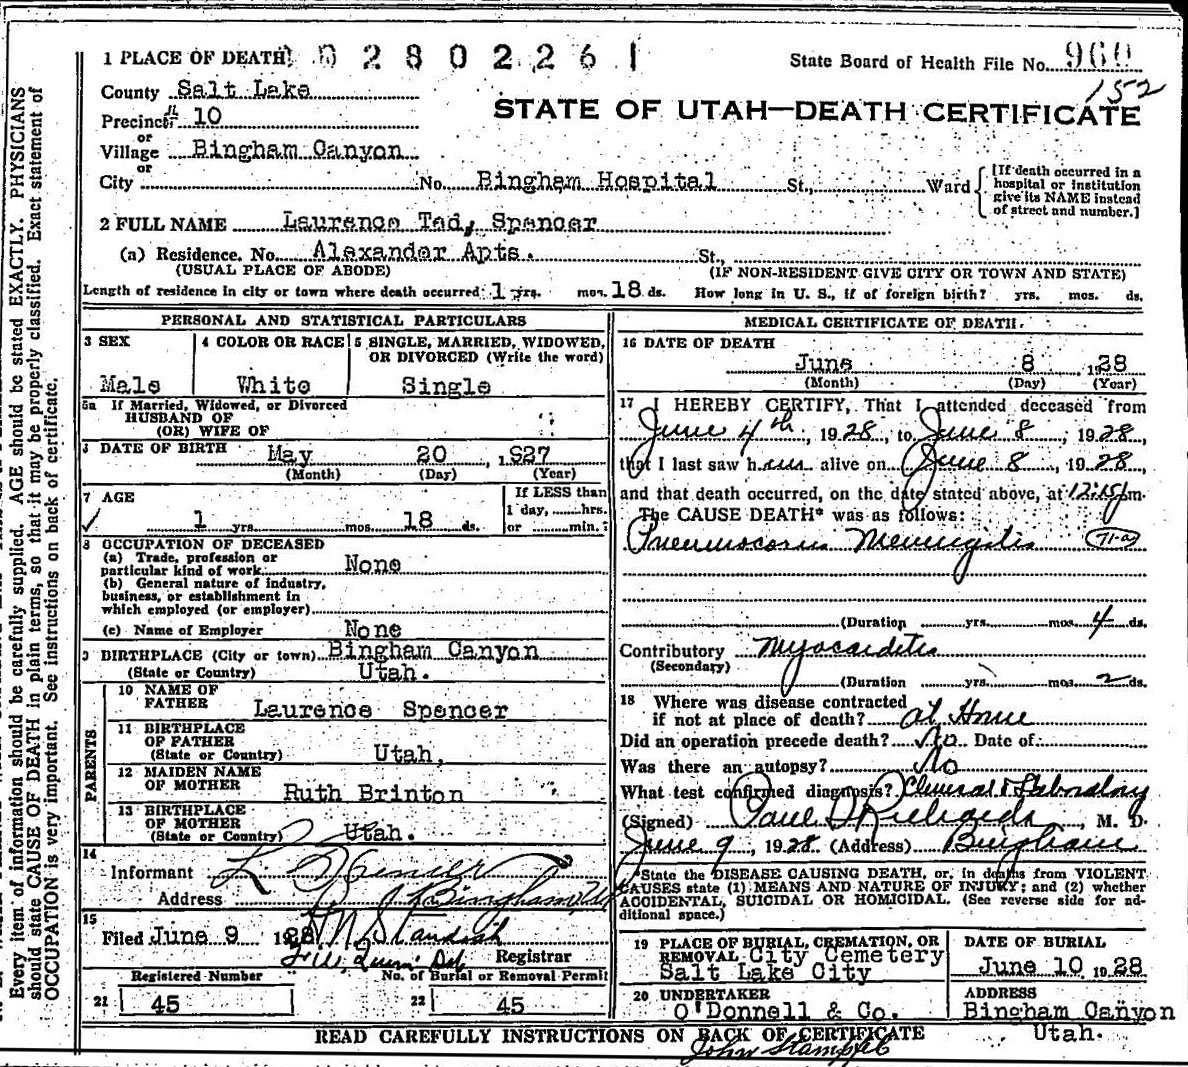 1 PLACE OF DEATH 0 2 8 0 2 2 6 1
State Board of Health File No. 960
152
County Salt Lake
STATE OF UTAH—DEATH CERTIFICATE
Precinct # 10
or
Village Bingham Canyon
or
City No. Bingham Hospital St., Ward
[If death occurred in a hospital or institution give its NAME instead of street and number.]
2 FULL NAME Laurence Tad, Spencer
(a) Residence. No. Alexander Apts. St.,
(USUAL PLACE OF ABODE) (IF NON-RESIDENT GIVE CITY OR TOWN AND STATE)
Length of residence in city or town where death occurred 1 yrs. mos. 18 ds. How long in U. S., if of foreign birth? yrs. mos. ds.
PERSONAL AND STATISTICAL PARTICULARS
3 SEX 4 COLOR OR RACE 5 SINGLE, MARRIED, WIDOWED, OR DIVORCED (Write the word)
Male White Single
5a If Married, Widowed, or Divorced
HUSBAND OF
(OR) WIFE OF
DATE OF BIRTH May 20, 1927
(Month) (Day) (Year)
7 AGE If LESS than
1 day, hrs.
1 yrs. mos. 18 ds. or min.?
8 OCCUPATION OF DECEASED
(a) Trade, profession or
particular kind of work. None
(b) General nature of industry,
business, or establishment in
which employed (or employer)
(c) Name of Employer None
9 BIRTHPLACE (City or town) Bingham Canyon
(State or Country) Utah.
PARENTS
10 NAME OF
FATHER Laurence Spencer
11 BIRTHPLACE
OF FATHER
(State or Country) Utah,
12 MAIDEN NAME
OF MOTHER Ruth Brinton
13 BIRTHPLACE
OF MOTHER
(State or Country) Utah.
14
Informant L Spencer
Address Bingham, Ut
15
Filed June 9 1928 H N Standish
Registrar
Registered Number No. of Burial or Removal Permit
21 45 22 45
MEDICAL CERTIFICATE OF DEATH.
16 DATE OF DEATH
June 8, 1928
(Month) (Day) (Year)
17 I HEREBY CERTIFY, That I attended deceased from
June 4th, 1928, to June 8, 1928,
that I last saw him alive on June 8, 1928,
and that death occurred, on the date stated above, at 12:15 pm.
The CAUSE DEATH* was as follows:
Pneumococcus Meningitis 71-a
(Duration yrs. mos. 4 ds.
Contributory Myocarditis
(Secondary)
(Duration yrs. mos. 2 ds.
18 Where was disease contracted
if not at place of death? at Home
Did an operation precede death? No Date of
Was there an autopsy? No
What test confirmed diagnosis? Clinical & Laboratory
(Signed) Paul S Richards, M. D.
June 9, 1928 (Address) Bingham
*State the DISEASE CAUSING DEATH, or, in deaths from VIOLENT
CAUSES state (1) MEANS AND NATURE OF INJURY; and (2) whether
ACCIDENTAL, SUICIDAL OR HOMICIDAL. (See reverse side for ad-
ditional space.)
19 PLACE OF BURIAL, CREMATION, OR REMOVAL City Cemetery
Salt Lake City
DATE OF BURIAL
June 10 1928
20 UNDERTAKER
O'Donnell & Co.
ADDRESS
Bingham Canyon
Utah.
READ CAREFULLY INSTRUCTIONS ON BACK OF CERTIFICATE
John Stampfel
Every item of information should be carefully supplied. AGE should be stated EXACTLY. PHYSICIANS
should state CAUSE OF DEATH in plain terms, so that it may be properly classified. Exact statement of
OCCUPATION is very important. See instructions on back of certificate.